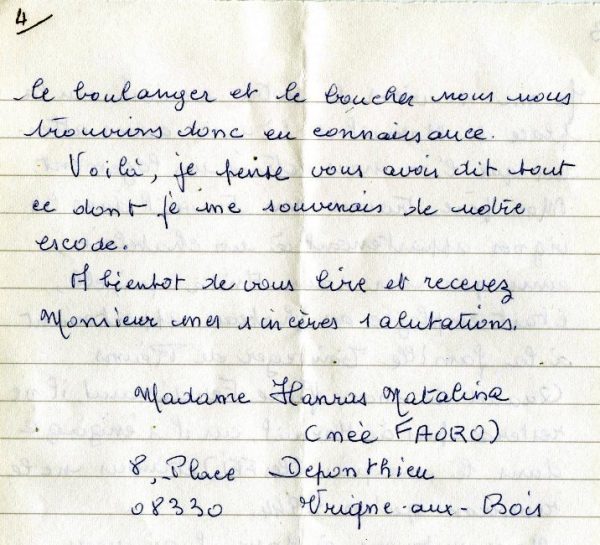 4
le boulanger et le boucher nous nous
trouvions donc en connaissance.
Voilà, je pense vous avoir dit tout
ce dont je me souvenais de notre
exode.
A bientot de vous lire et recevez
Monsieur mes sincères salutations.
Madame Hanras Natalina
(née FAORO)
8, Place Deponthieu
08330 Vrigne-aux-Bois